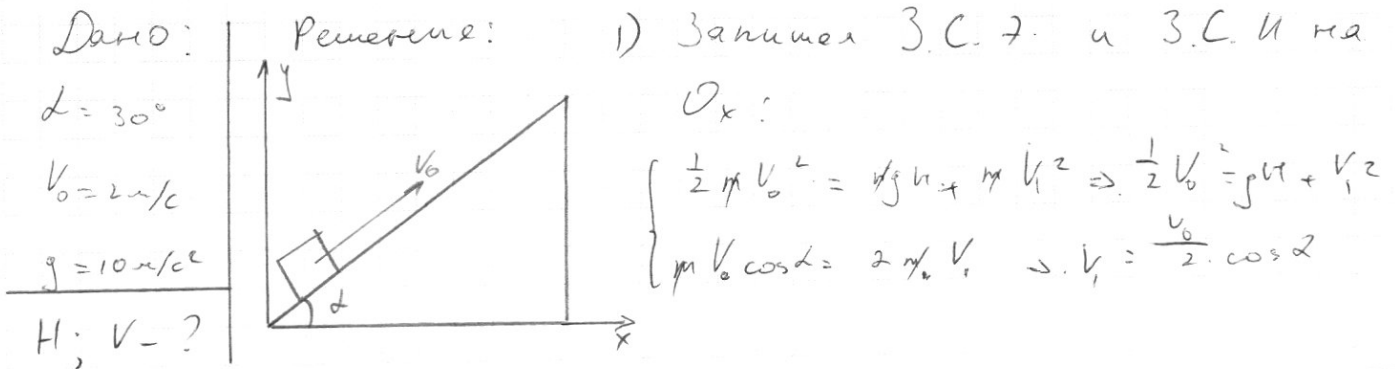 Дано:
α = 30°
V₀ = 2 м/с
g = 10 м/с²
H; V - ?
Решение:
y
V₀
α
x
1) Запишем З.С.Э. и З.С.И на
Oₓ:
½ m V₀² = mgH + m V₁² ⇒ ½ V₀² = gH + V₁²
m V₀ cos α = 2 m V₁ ⇒ V₁ = V₀/2 · cos α